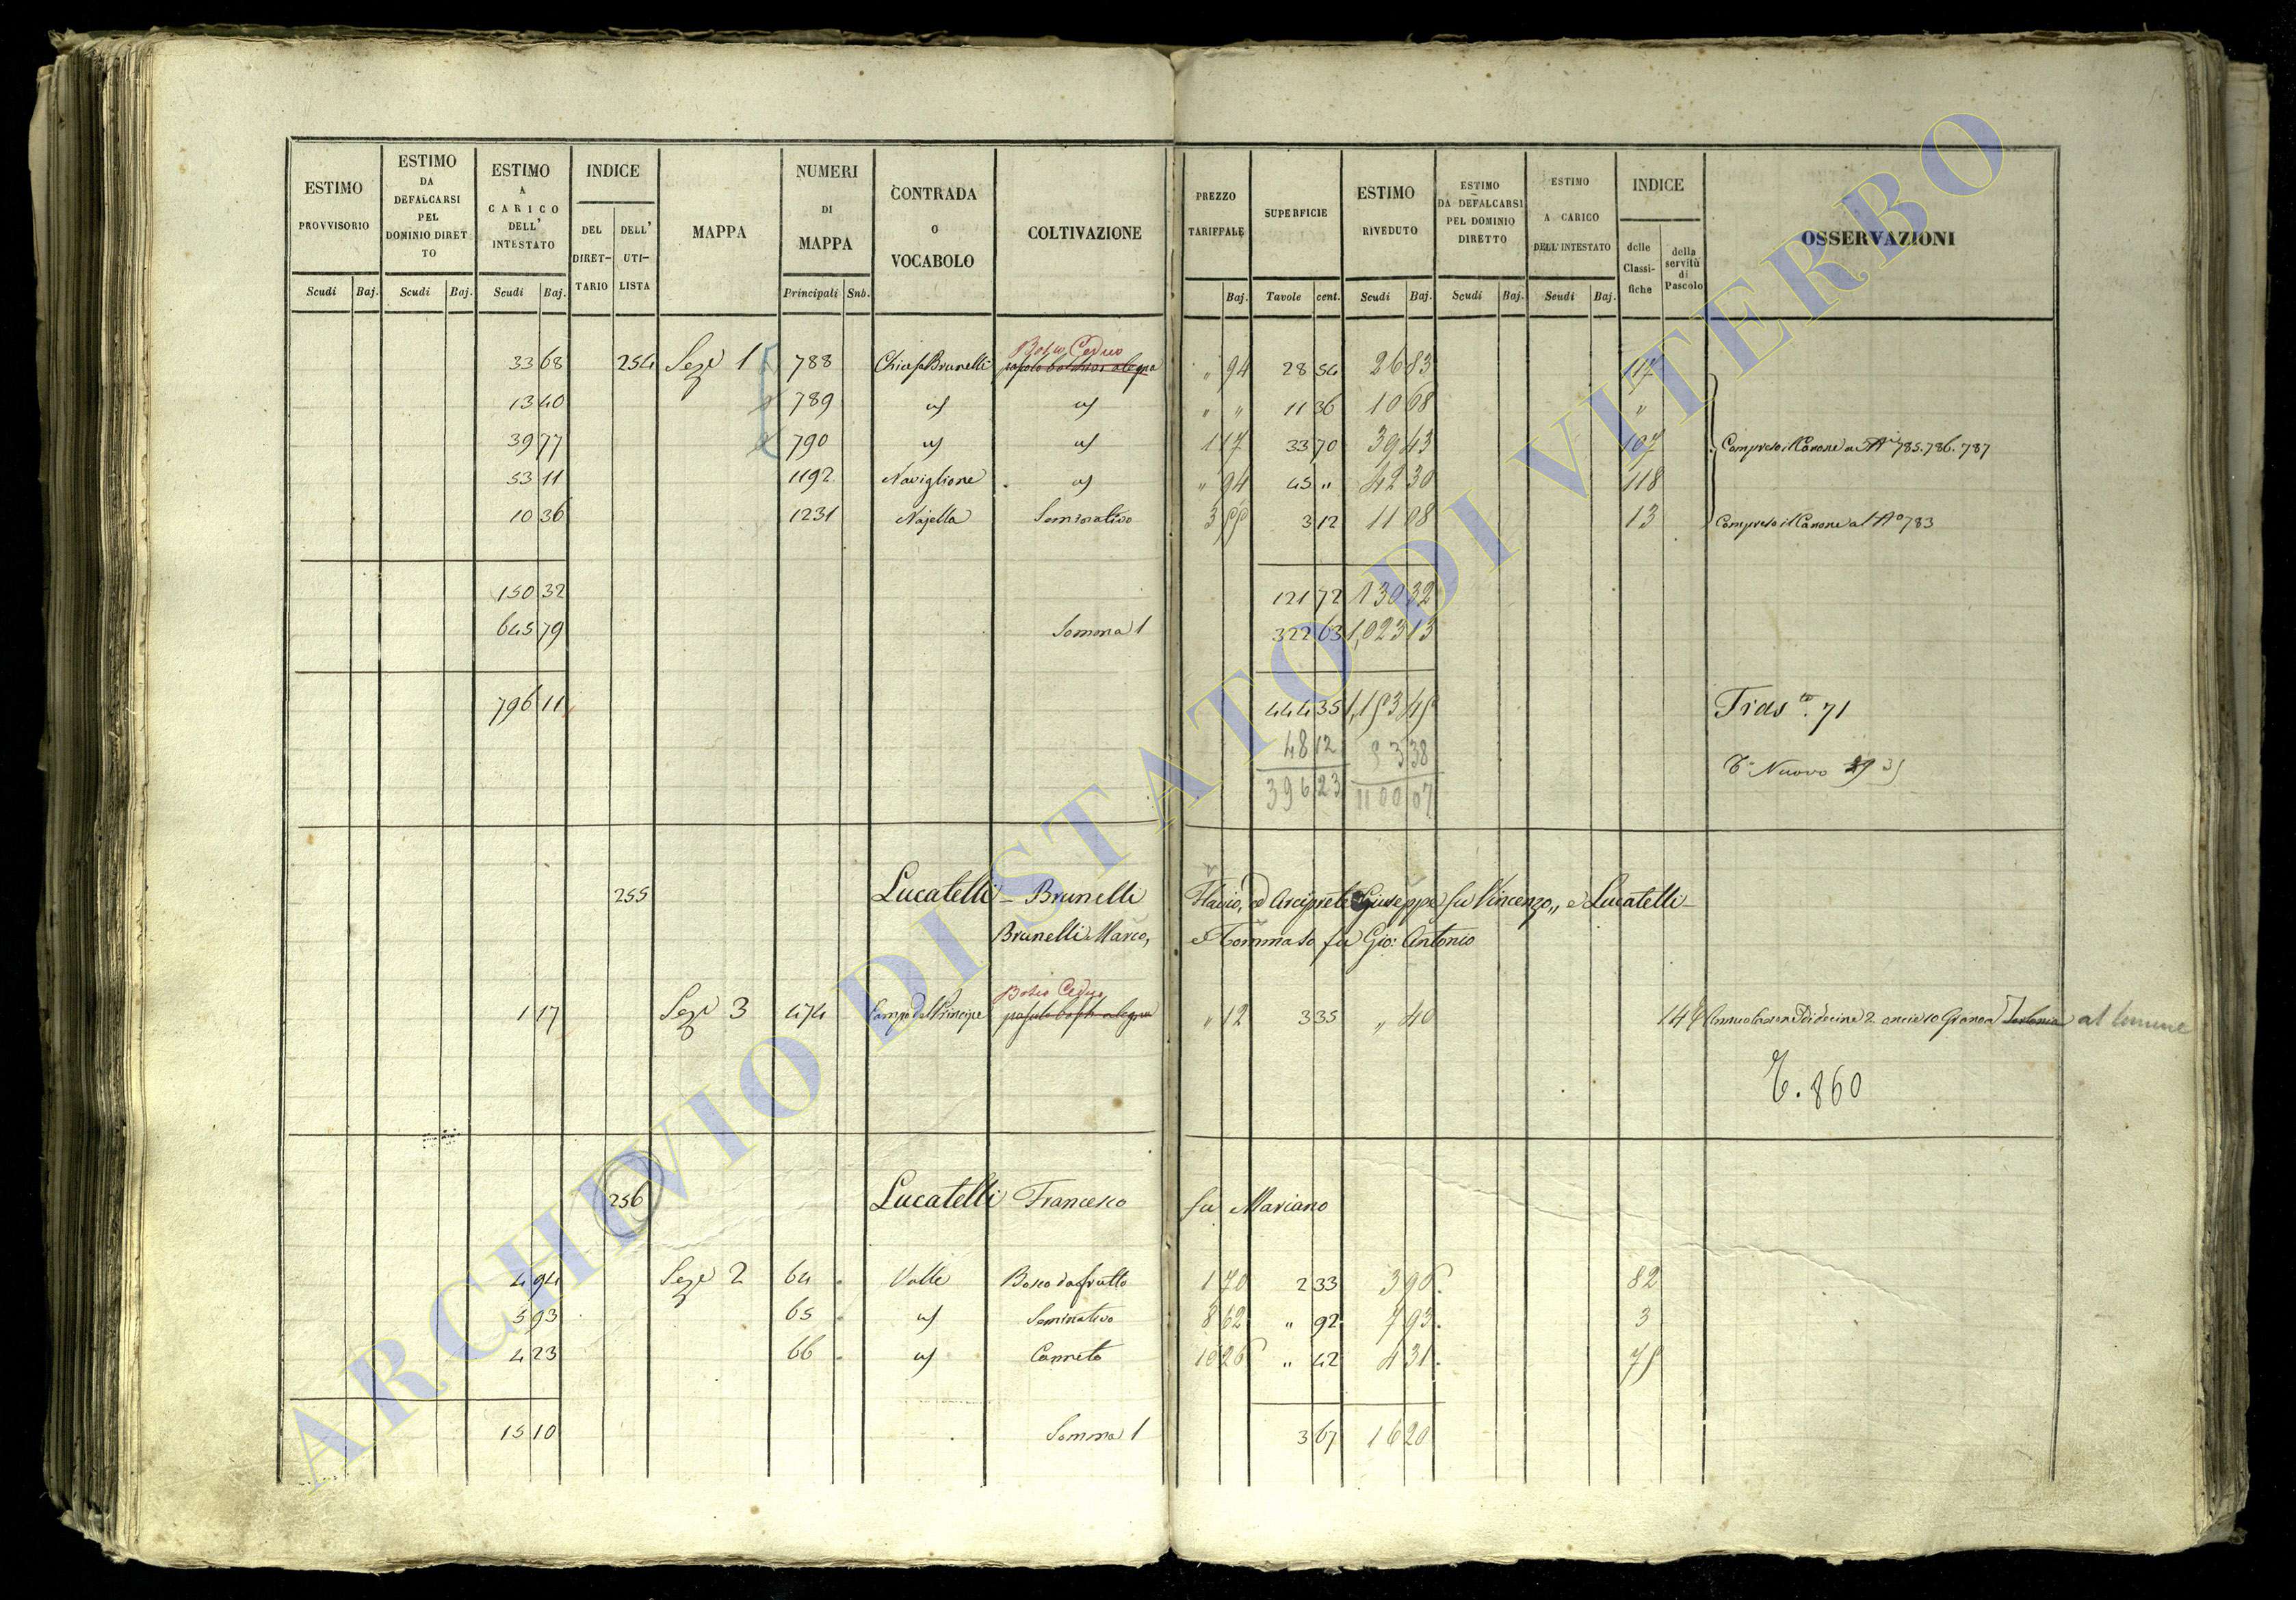 ESTIMO PROVVISORIO Scudi Baj. ESTIMO DA DEFALCARSI PEL DOMINIO DIRETTO Scudi Baj. ESTIMO A CARICO DELL' INTESTATO Scudi Baj. INDICE DEL DIRET-TARIO DELL' UTI-LISTA MAPPA NUMERI DI MAPPA Principali Snb. CONTRADA O VOCABOLO COLTIVAZIONE PREZZO TARIFFALE Baj. SUPERFICIE Tavole cent. ESTIMO RIVEDUTO Scudi Baj. ESTIMO DA DEFALCARSI PEL DOMINIO DIRETTO Scudi Baj. ESTIMO A CARICO DELL' INTESTATO Scudi Baj. INDICE delle Classifiche della servitù di Pascolo OSSERVAZIONI
Bosco Ceduo
33 68 254 Seze 1 788 Chiusa Brunelli " 94 28 54 26 83 117
13 40 789 id id " " 11 36 10 68 "
39 77 790 id id 1 17 33 70 39 43 107 Compreso il Canone ai Ni 785. 786. 787
53 11 1192 Naviglione id " 94 45 " 42 30 118
10 36 1231 Najella Seminativo 3 55 3 12 11 08 13 Compreso il Canone al No 783
150 32 121 72 130 32
645 79 Somma 1 322 63 1,023 13
796 11 444 35 1,153 45 Trasto. 71
48 12 53 38
396 23 1100 07 To Nuovo 35
255 Lucatelli - Brunelli Flavio, ed Arciprete Giuseppe fu Vincenzo,, e Lucatelli -
Brunelli Marco, e Tommaso fu Gio: Antonio
Bosco Ceduo
1 17 Seze 3 474 Campo del Principe " 12 3 35 " 40 Annuo Canone di decine 2 oncie 10 Grano a al Comune
T. 860
256 Lucatelli Francesco fu Mariano
4 94 Seze 2 64 Valle Bosco da frutto 1 70 2 33 3 96 82
5 93 65 id Seminativo 8 62 " 92 7 93 3
4 23 66 id Canneto 10 26 " 42 4 31 75
15 10 Somma 1 3 67 16 20
ARCHIVIO DI STATO DI VITERBO